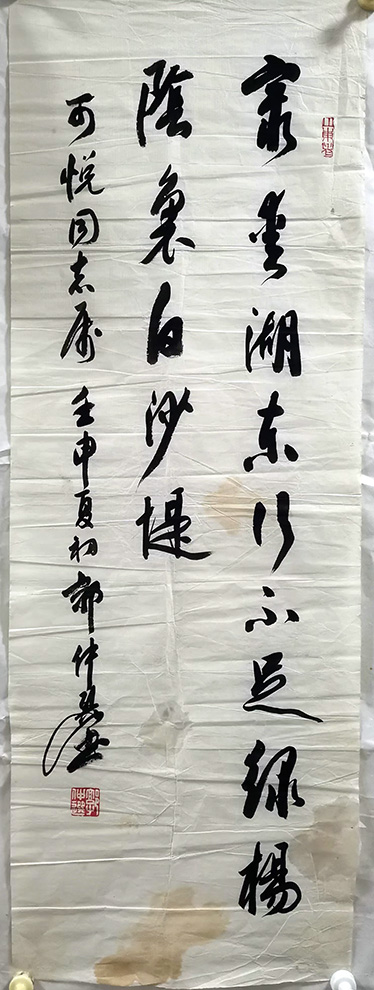 最爱湖东行不足绿杨
阴里白沙堤
可悦同志属 壬申夏初 郭仲选书